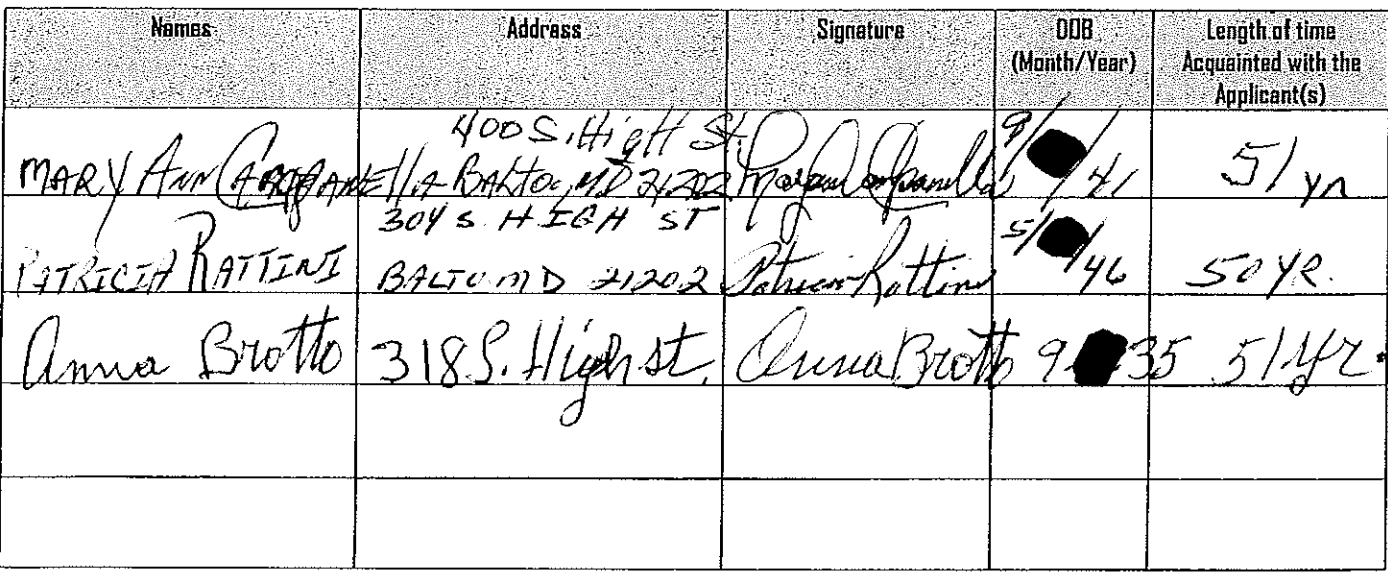 Names Address Signature DOB (Month/Year) Length of time Acquainted with the Applicant(s)
400 S. High St.
MARY ANN CAMPANELLA BALTO, MD 21202 Maryann Campanella 9/ /41 51 yr
304 S. HIGH ST
PATRICIA RATTINI BALTO MD 21202 Patricia Rattini 5/ /46 50 YR.
Anna Brotto 318 S. High st. Anna Brotto 9 35 51 yr.